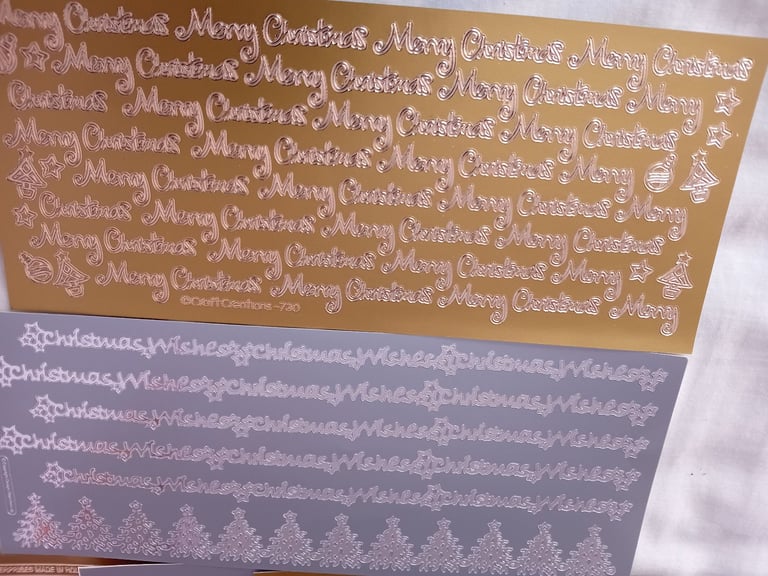 Merry Christmas Merry Christmas Merry Christmas Merry Christmas
Merry Christmas Merry Christmas Merry Christmas Merry
Christmas Merry Christmas Merry Christmas Merry Christmas
Merry Christmas Merry Christmas Merry Christmas Merry
Merry Christmas Merry Christmas Merry Christmas Merry
Christmas Merry Christmas Merry Christmas Merry Christmas
Merry Christmas Merry Christmas Merry Christmas Merry
Merry Christmas Merry Christmas Merry Christmas Merry
©Craft Creations -730
Christmas Wishes Christmas Wishes Christmas Wishes
Christmas Wishes Christmas Wishes Christmas Wishes
Christmas Wishes Christmas Wishes Christmas Wishes
Christmas Wishes Christmas Wishes Christmas Wishes
Christmas Wishes Christmas Wishes Christmas Wishes
ERPRISES MADE IN HOL